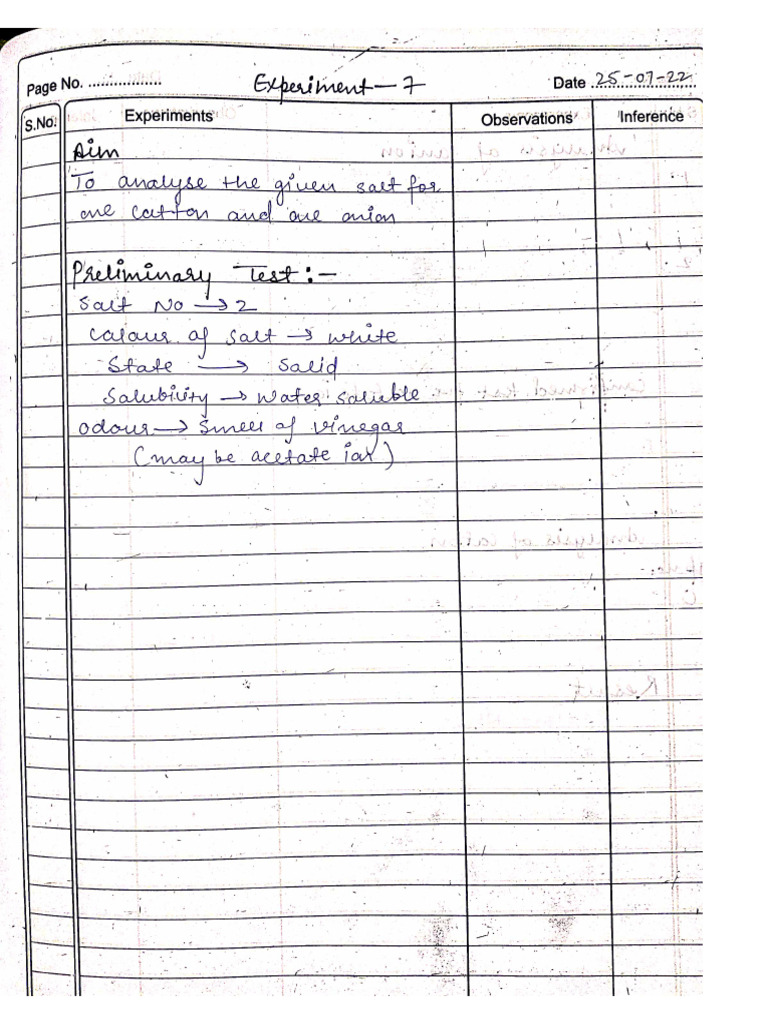 Page No. ................ Experiment - 7 Date 25-07-22
S.No. Experiments Observations Inference
Aim
To analyse the given salt for
one cation and one anion
Preliminary Test :-
Salt No → 2
Colour of salt → white
State → Solid
Solubility → Water soluble
Odour → Smell of vinegar
(may be acetate ion)